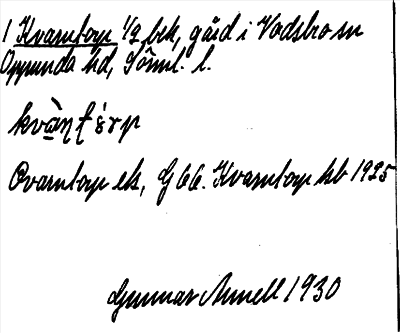 1 Kvarntorp 1/2 bek, gård i Vadsbro sn
Oppunda hd, Söml. l.
kvà̱ṇṭórp
Qvarntorp ek, G 66. Kvarntorp kb 1925
Gunnar Annell 1930